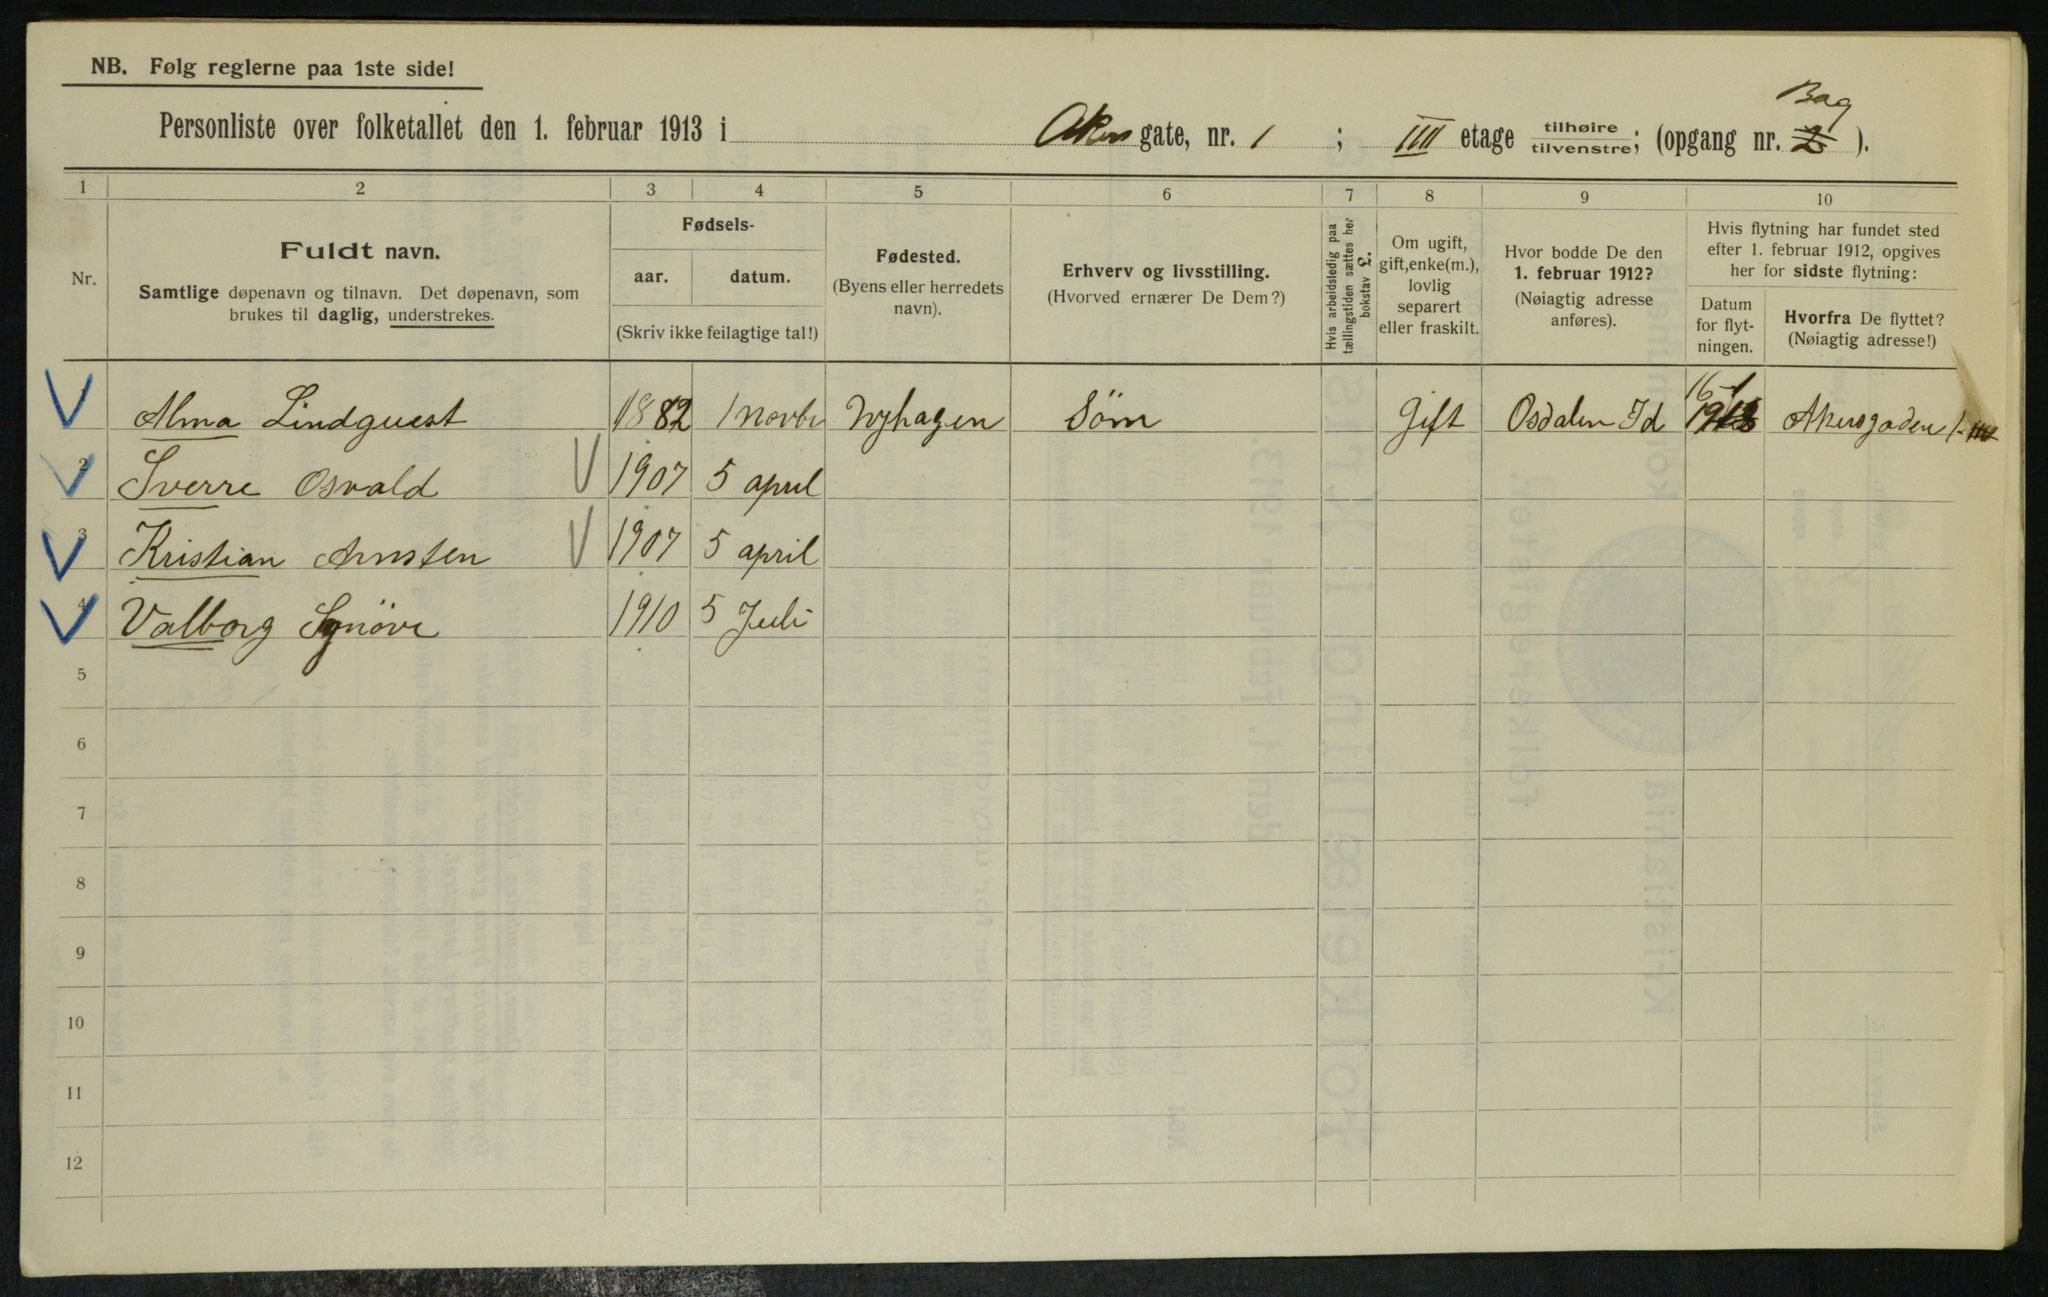 NB. Følg reglerne paa 1ste side!
Bag
Personliste over folketallet den 1. februar 1913 i Akers gate, nr. 1 ; IIII etage tilhøire tilvenstre; (opgang nr. 2 ).
1 2 3 4 5 6 7 8 9 10
Nr.
Fuldt navn.
Samtlige døpenavn og tilnavn. Det døpenavn, som
brukes til daglig, understrekes.
Fødsels-
aar. datum.
(Skriv ikke feilagtige tal!)
Fødested.
(Byens eller herredets
navn).
Erhverv og livsstilling.
(Hvorved ernærer De Dem?)
Hvis arbeidsledig paa
tællingstiden sættes her
bokstav L.
Om ugift,
gift, enke(m.),
lovlig
separert
eller fraskilt.
Hvor bodde De den
1. februar 1912?
(Nøiagtig adresse
anføres).
Hvis flytning har fundet sted
efter 1. februar 1912, opgives
her for sidste flytning:
Datum
for flyt-
ningen.
Hvorfra De flyttet?
(Nøiagtig adresse!)
1 Alma Lindquest 1882 1 Novbr Nyhagen Söm Gift Osdalen Id Akersgaden 1
2 Sverre Osvald 1907 5 april
3 Kristian Arnsten 1907 5 april
4 Valborg Synöve 1910 5 Juli
5
6
7
8
9
10
11
12